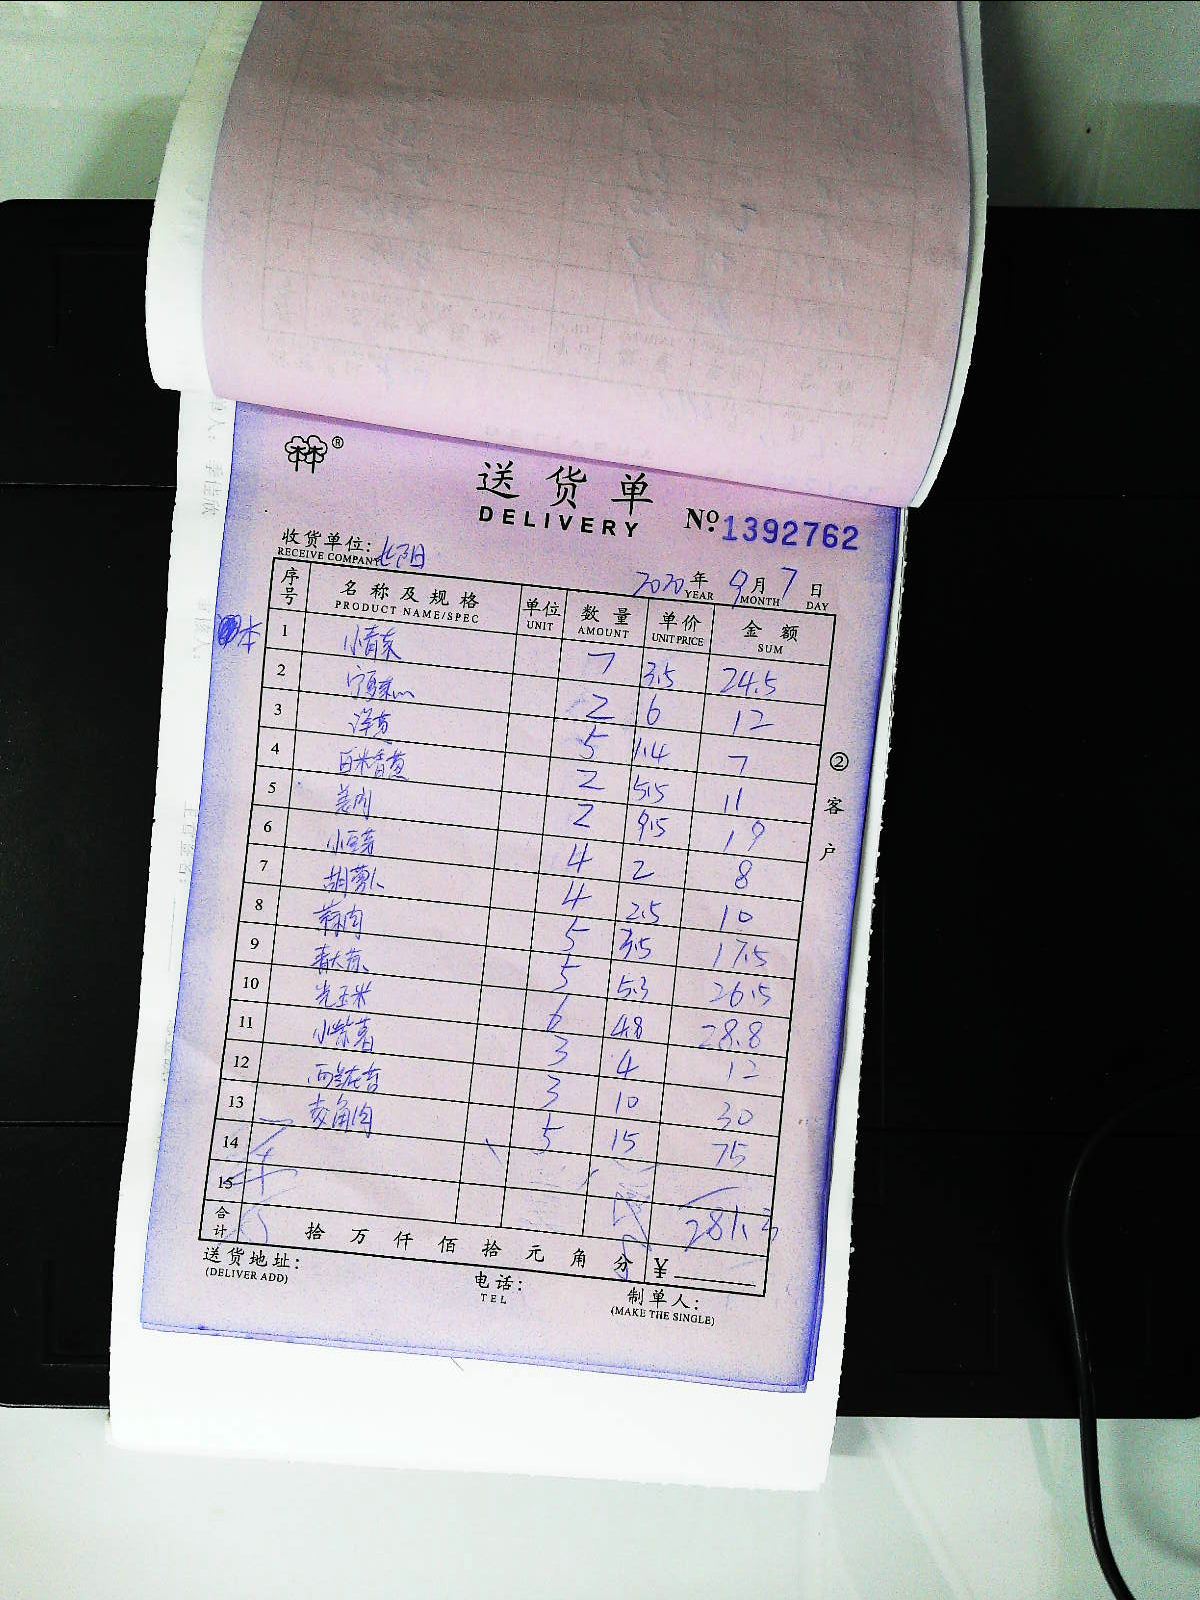 林 ®
送货单
DELIVERY
No. 1392762
收货单位: 北阳
RECEIVE COMPANY
2020年 9月 7日
YEAR MONTH DAY
序号 名称及规格 单位 数量 单价 金额
PRODUCT NAME/SPEC UNIT AMOUNT UNIT PRICE SUM
本
1 小青菜 7 3.5 24.5
2 2 6 12
3 洋葱 5 1.4 7
4 百米香葱 2 5.5 11
5 姜肉 2 9.5 19
6 小豆芽 4 2 8
7 胡萝卜 4 2.5 10
8 蒜肉 5 3.5 17.5
9 青大蒜 5 5.3 26.5
10 光玉米 6 4.8 28.8
11 小紫薯 3 4 12
12 西兰花苔 3 10 30
13 菱角肉 5 15 75
14
15 281.3
合计 拾 万 仟 佰 拾 元 角 分 ¥
送货地址:
(DELIVER ADD)
电话:
TEL
制单人:
(MAKE THE SINGLE)
②客户